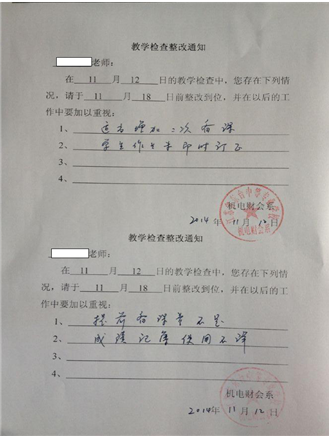 教学检查整改通知
老师：
在 11 月 12 日的教学检查中，您存在下列情
况，请于 11 月 18 日前整改到位，并在以后的工
作中要加以重视：
1、 二次备课
2、学生作业未及时订正
3、
4、
机电财会系
2014年11月12日
教学检查整改通知
老师：
在 11 月 12 日的教学检查中，您存在下列情
况，请于 11 月 18 日前整改到位，并在以后的工
作中要加以重视：
1、提前备课量不足
2、成绩记 使用不
3、
4、
机电财会系
2014年11月12日